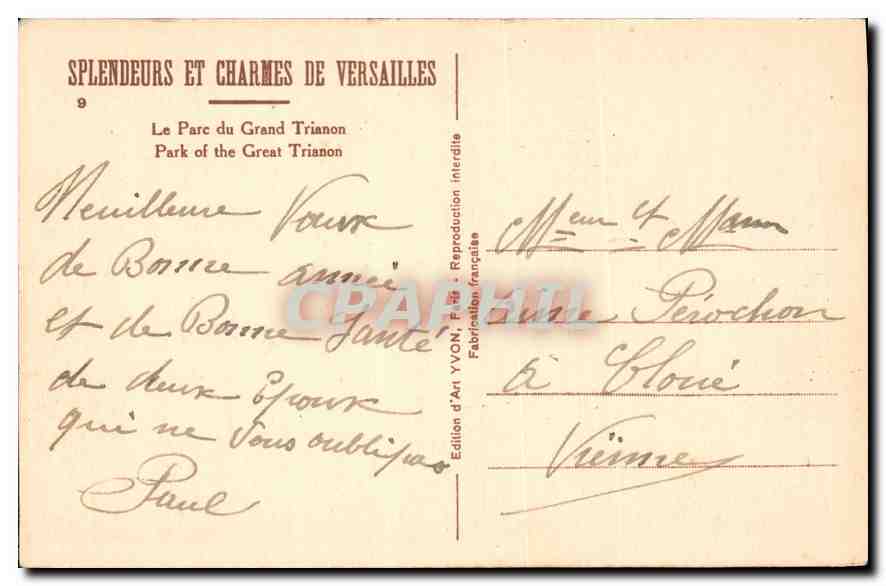 SPLENDEURS ET CHARMES DE VERSAILLES
9
Le Parc du Grand Trianon
Park of the Great Trianon
Meuilleure Vœux
de Bonne année
et de Bonne Santé
de deux Epoux
qui ne vous oubli pas
Paul
Edition d'Art YVON, Paris - Reproduction interdite
Fabrication française
CPAPHIL
Meur et
Pérochon
à Cloué
Vienne